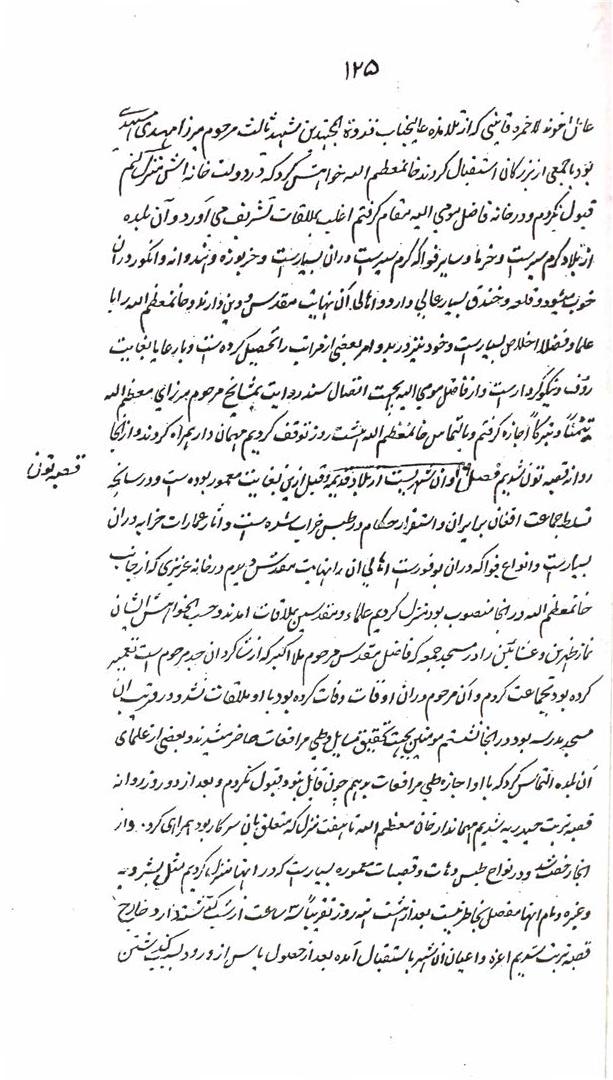 ۱۲۵
بود با جمعی از بزرگان استقبال کردند خانمعظم الله خواهش کرد که در دولت خانه اش منزل کنم
قبول نکردم و در خانه فاضل مومی الیه مقام گرفتم اغلب بملاقات تشریف می آورد و آن بلده
از بلاد گرم سیرست و خرما و سایر فواکه گرم سیرست دران بسیارست و خربوزه و هندوانه و انگور دران
خوب میشود و قلعه و خندق بسیار عالی دارد و اهالی آن نهایت مقدس و دین دارند و خانمعظم الله را با
علما و فضلا اخلاص بسیارست و خود نیز در بدو امر بعضی از مراتب را تحصیل کرده ست و با رعایا بغایت
رؤف و نیکوکردارست و از فاضل مومی الیه بجهت اتصال سند روایت بمشایخ مرحوم مرزای معظم الله
تیمناً و تبرکاً اجازه گرفتم و بالتماس خانمعظم الله هشت روز توقف کردیم مهمان دار همراه کردند و از انجا
روانه قصبه تون شدیم فصل و آن شهریست از بلاد قدیمه و قبل ازین بغایت معمور بوده ست و در سانحه
قصبه تون
تسلط جماعت افغان بر ایران و استقرار حکام در طبس خراب شده ست و آثار عمارات خرابه دران
بسیارست و انواع فواکه دران بوفورست اهالی آن را نهایت مقدس دیدم در خانه عزیزی که از جانب
خانمعظم الله در انجا منصوب بود منزل کردیم علماء و مقدسین بملاقات آمدند و حسب الخواهش ایشان
نماز ظهرین و عشائین را در مسجد جمعه که فاضل مقدس مرحوم ملا اکبر که از شاگردان جد مرحوم است تعمیر
کرده بود بجماعت کردم و آن مرحوم دران اوقات وفات کرده بود با او ملاقات نشد و در قرب آن
مسجد مدرسه بود در انجا نشستم مومنین بجهت تحقیق مسایل و طی مرافعات حاضر میشدند و بعضی از علمای
آن بلده التماس کرد که با او اجازه طی مرافعات بدهم چون قابل نبود قبول نکردم و بعد از دو روز روانه
قصبه تربت حیدریه شدیم مهماندار خان معظم الله تا هفت منزل که متعلق بان سرکار بود همراهی کرد و از
انجا رخصت شد و در نواح طبس دهات و قصبات معموره بسیارست که در انها منزل کردیم مثل بشرویه
و غیره و نام انها مفصل بخاطر نیست بعد از هشت نه روز تقریباً سه ساعت از شب گذشته وارد خارج
قصبه تربت شدیم اعزه و اعیان آن شهر باستقبال آمده بعد از حصول یاس از ورود